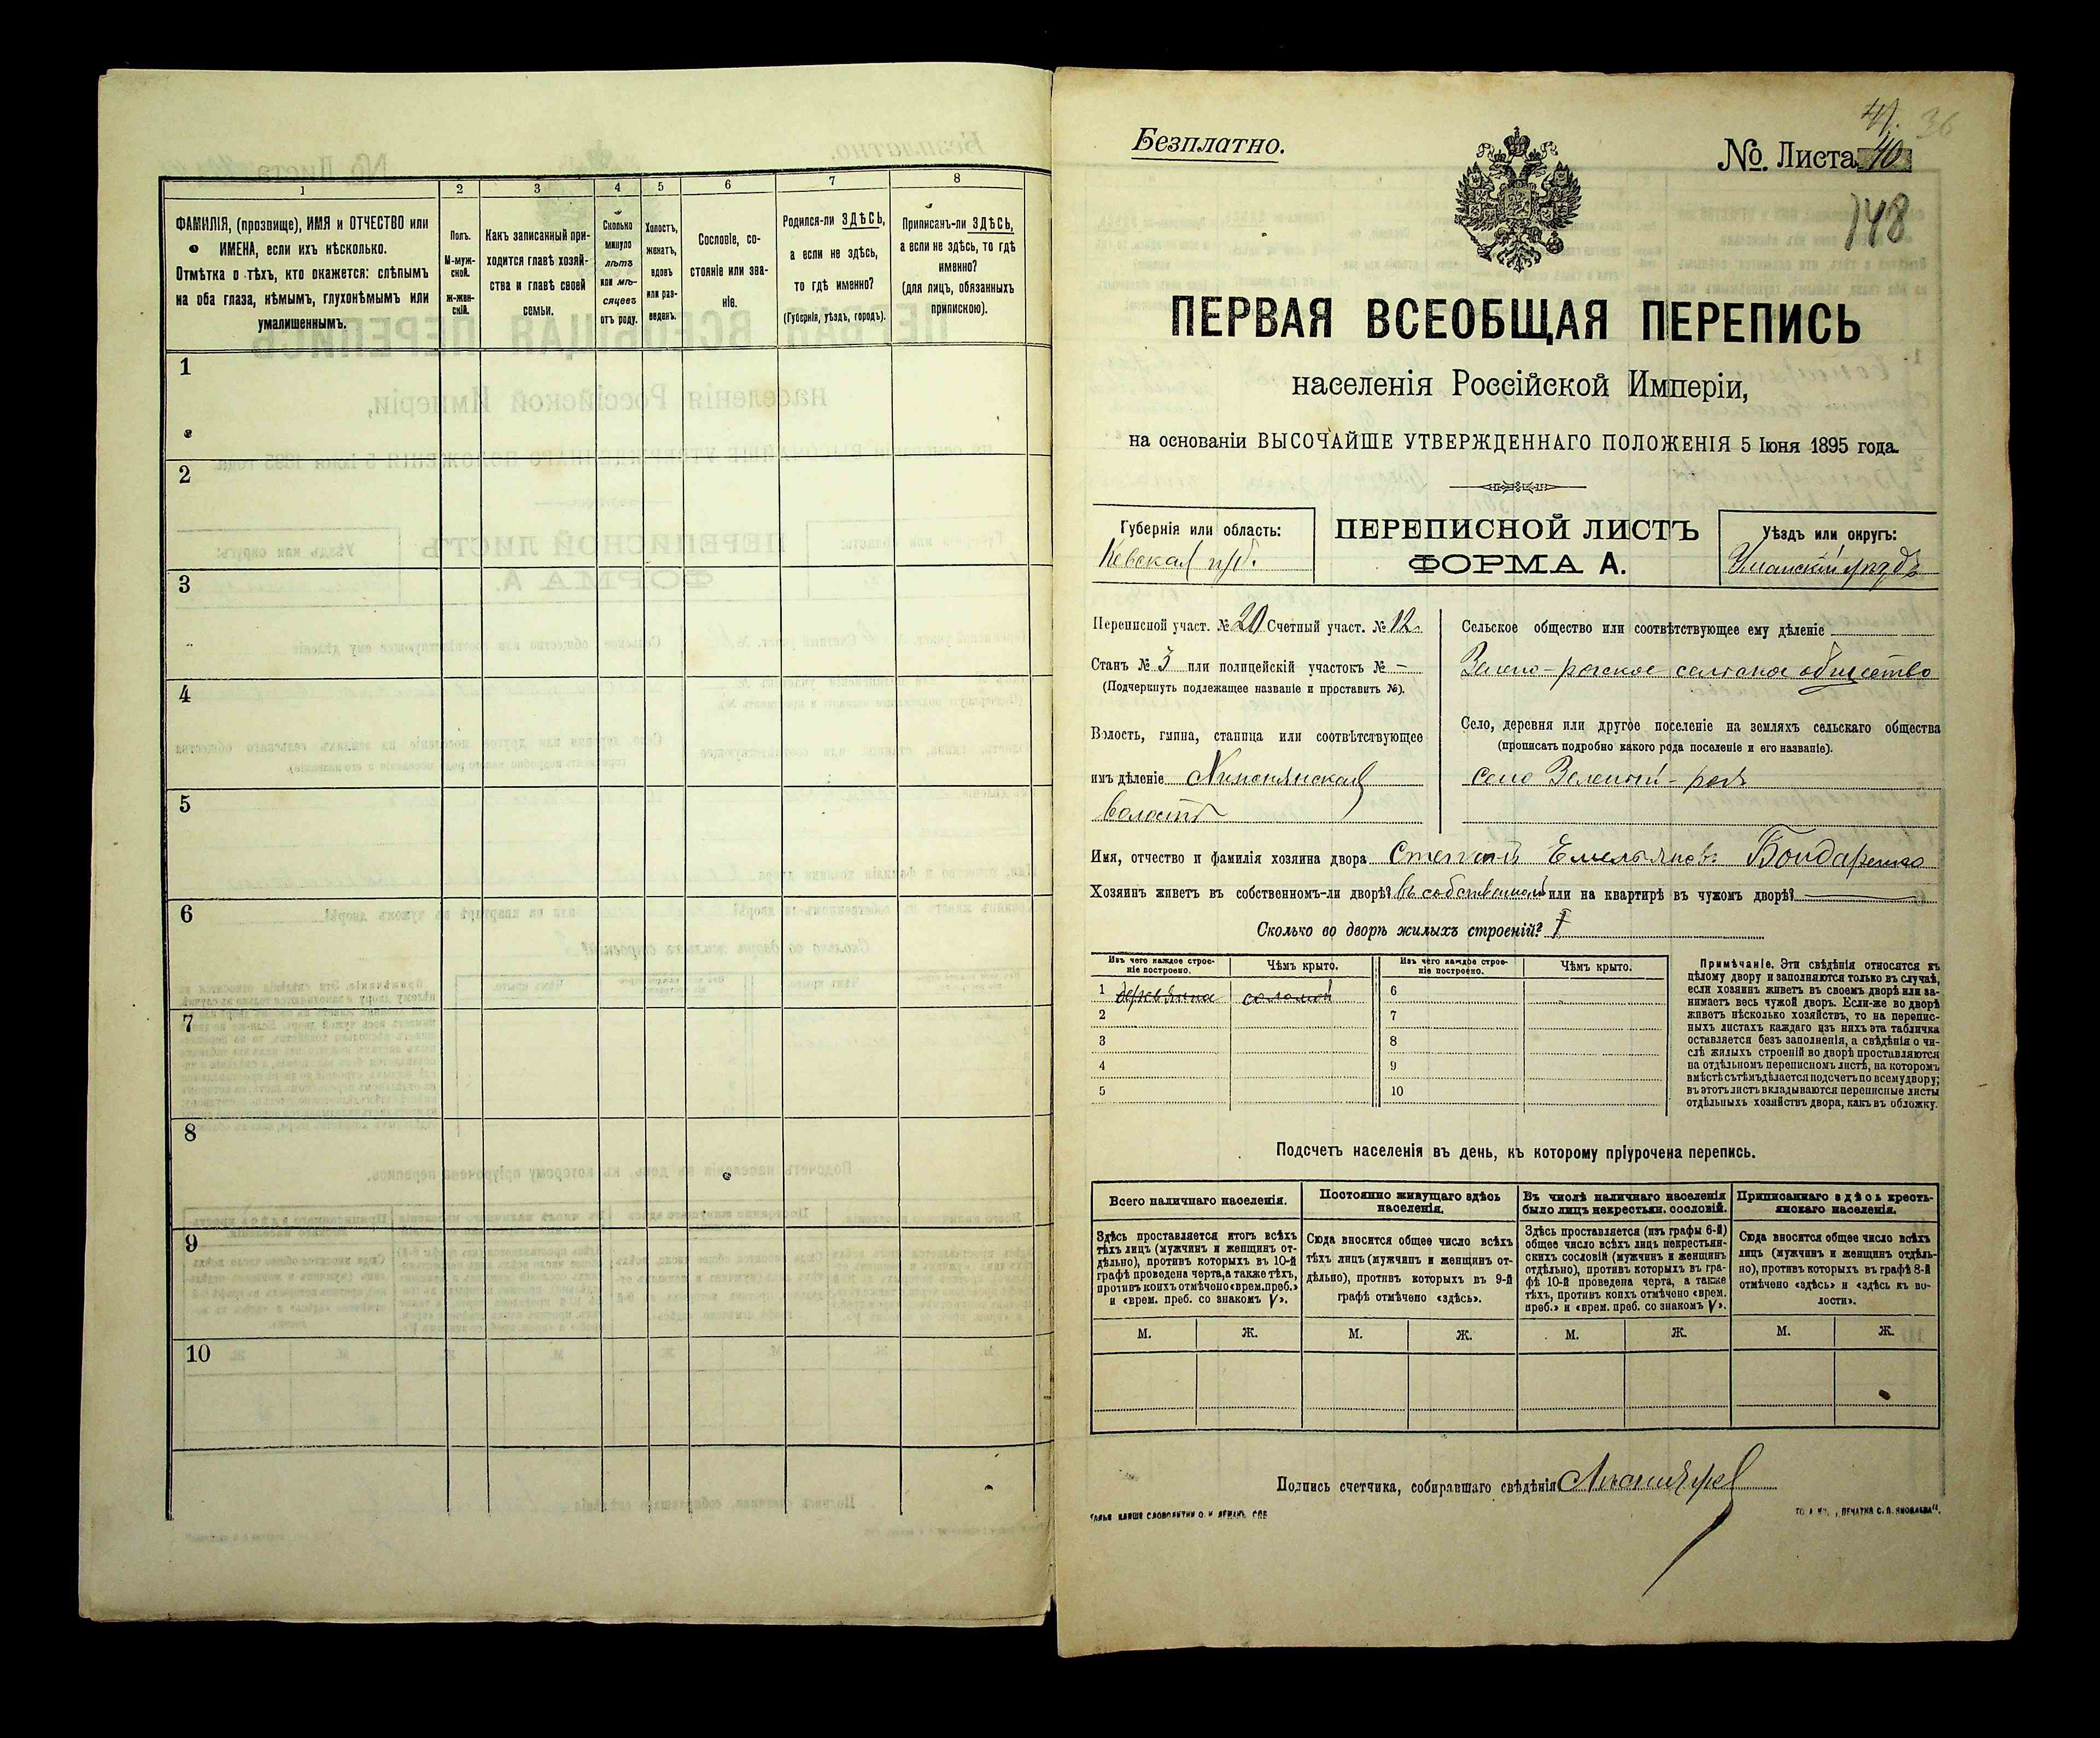 1 2 3 4 5 6 7 8
ФАМИЛІЯ, (прозвище), ИМЯ и ОТЧЕСТВО или
ИМЕНА, если ихъ нѣсколько.
Отмѣтка о тѣхъ, кто окажется: слѣпымъ
на оба глаза, нѣмымъ, глухонѣмымъ или
умалишеннымъ.
Полъ.
М-муж-
ской.
ж-жен-
скій.
Какъ записанный при-
ходится главѣ хозяй-
ства и главѣ своей
семьи.
Сколько
минуло
лѣтъ
или мѣ-
сяцевъ
отъ роду.
Холостъ,
женатъ,
вдовъ
или раз-
веденъ.
Сословіе, со-
стояніе или зва-
ніе.
Родился-ли ЗДѢСЬ,
а если не здѣсь,
то гдѣ именно?
(Губернія, уѣздъ, городъ).
Приписанъ-ли ЗДѢСЬ,
а если не здѣсь, то гдѣ
именно?
(для лицъ, обязанныхъ
припискою).
1
2
3
4
5
6
7
8
9
10
41. 36
Безплатно.
№ Листа 40
148
ПЕРВАЯ ВСЕОБЩАЯ ПЕРЕПИСЬ
населенія Россійской Имперіи,
на основаніи ВЫСОЧАЙШЕ УТВЕРЖДЕННАГО ПОЛОЖЕНІЯ 5 Іюня 1895 года.
Губернія или область:
ПЕРЕПИСНОЙ ЛИСТЪ
ФОРМА А.
Уѣздъ или округъ:
Уманскій уѣздъ
Переписной участ. № 20 Счетный участ. № 12.
Станъ № 3 или полицейскій участокъ № –
(Подчеркнуть подлежащее названіе и проставить №).
Волость, гмина, станица или соотвѣтствующее
имъ дѣленіе
волость
Сельское общество или соотвѣтствующее ему дѣленіе
Зелено-рогское сельское общество
Село, деревня или другое поселеніе на земляхъ сельскаго общества
(прописать подробно какого рода поселеніе и его названіе).
село Зеленый-рогъ
Имя, отчество и фамилія хозяина двора Степанъ Емельяновъ Бондаренко
Хозяинъ живетъ въ собственномъ-ли дворѣ? въ собственомъ или на квартирѣ въ чужомъ дворѣ? —
Сколько во дворѣ жилыхъ строеній? 1
Изъ чего каждое строе-
ніе построено.
Чѣмъ крыто.
Изъ чего каждое строе-
ніе построено.
Чѣмъ крыто.
1 деревянна соломой 6
2 7
3 8
4 9
5 10
Примѣчаніе. Эти свѣдѣнія относятся къ
цѣлому двору и заполняются только въ случаѣ,
если хозяинъ живетъ въ своемъ дворѣ или за-
нимаетъ весь чужой дворъ. Если-же во дворѣ
живетъ нѣсколько хозяйствъ, то на перепис-
ныхъ листахъ каждаго изъ нихъ эта табличка
оставляется безъ заполненія, а свѣдѣнія о чи-
слѣ жилыхъ строеній во дворѣ проставляются
на отдѣльномъ переписномъ листѣ, на которомъ
вмѣстѣ съ тѣмъ дѣлается подсчетъ по всему двору;
въ этотъ листъ вкладываются переписные листы
отдѣльныхъ хозяйствъ двора, какъ въ обложку.
Подсчетъ населенія въ день, къ которому пріурочена перепись.
Всего наличнаго населенія.
Здѣсь проставляется итогъ всѣхъ
тѣхъ лицъ (мужчинъ и женщинъ от-
дѣльно), противъ которыхъ въ 10-й
графѣ проведена черта, а также тѣхъ,
противъ коихъ отмѣчено «врем. преб.»
и «врем. преб. со знакомъ V».
Постоянно живущаго здѣсь
населенія.
Сюда вносится общее число всѣхъ
тѣхъ лицъ (мужчинъ и женщинъ от-
дѣльно), противъ которыхъ въ 9-й
графѣ отмѣчено «здѣсь».
Въ числѣ наличнаго населенія
было лицъ некрестьян. сословій.
Здѣсь проставляется (изъ графы 6-й)
общее число всѣхъ лицъ некрестьян-
скихъ сословій (мужчинъ и женщинъ
отдѣльно), противъ которыхъ въ гра-
фѣ 10-й проведена черта, а также
тѣхъ, противъ коихъ отмѣчено «врем.
преб.» и «врем. преб. со знакомъ V».
Приписаннаго здѣсь кресть-
янскаго населенія.
Сюда вносится общее число всѣхъ
лицъ (мужчинъ и женщинъ отдѣль-
но), противъ которыхъ въ графѣ 8-й
отмѣчено «здѣсь» и «здѣсь къ во-
лости».
М. Ж. М. Ж. М. Ж. М. Ж.
Подпись счетчика, собиравшаго свѣдѣнія